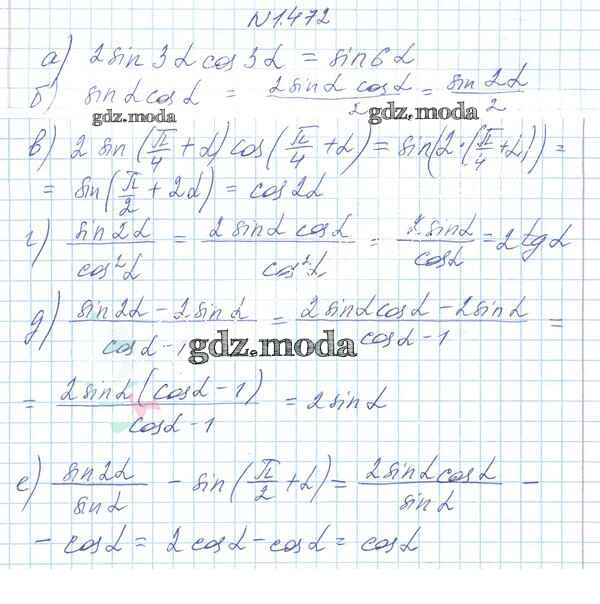 N1.472
а) 2sin3α cos3α = sin6α
б) sinα cosα = 2sinα cosα/2 = sin2α/2
gdz.moda
в) 2 sin(π/4 + α) cos(π/4 + α) = sin(2·(π/4 + α)) =
= sin(π/2 + 2α) = cos2α
г) sin2α/cos²α = 2sinα cosα/cos²α = 2sinα/cosα = 2tgα
д) sin2α - 2sinα/cosα - 1 = 2sinα cosα - 2sinα/cosα - 1 =
gdz.moda
= 2sinα(cosα - 1)/cosα - 1 = 2sinα
е) sin2α/sinα - sin(π/2 + α) = 2sinα cosα/sinα -
- cosα = 2cosα - cosα = cosα